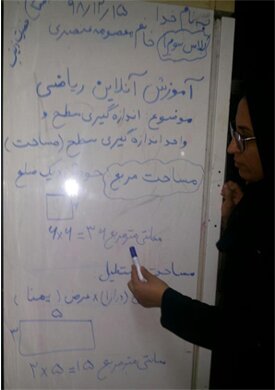 به نام خدا ۹۸/۱۲/۱۵
کلاس سوم خانم معصومه منتصری
آموزش آنلاین ریاضی
موضوع: اندازه گیری سطح و
واحد اندازه گیری سطح (مساحت)
مساحت مربع یک ضلع
۶×۶=۳۶ سانتی متر مربع
مساحت مستطیل
(درازا) × عرض (پهنا)
۵
۳
۳×۵=۱۵ سانتی متر مربع